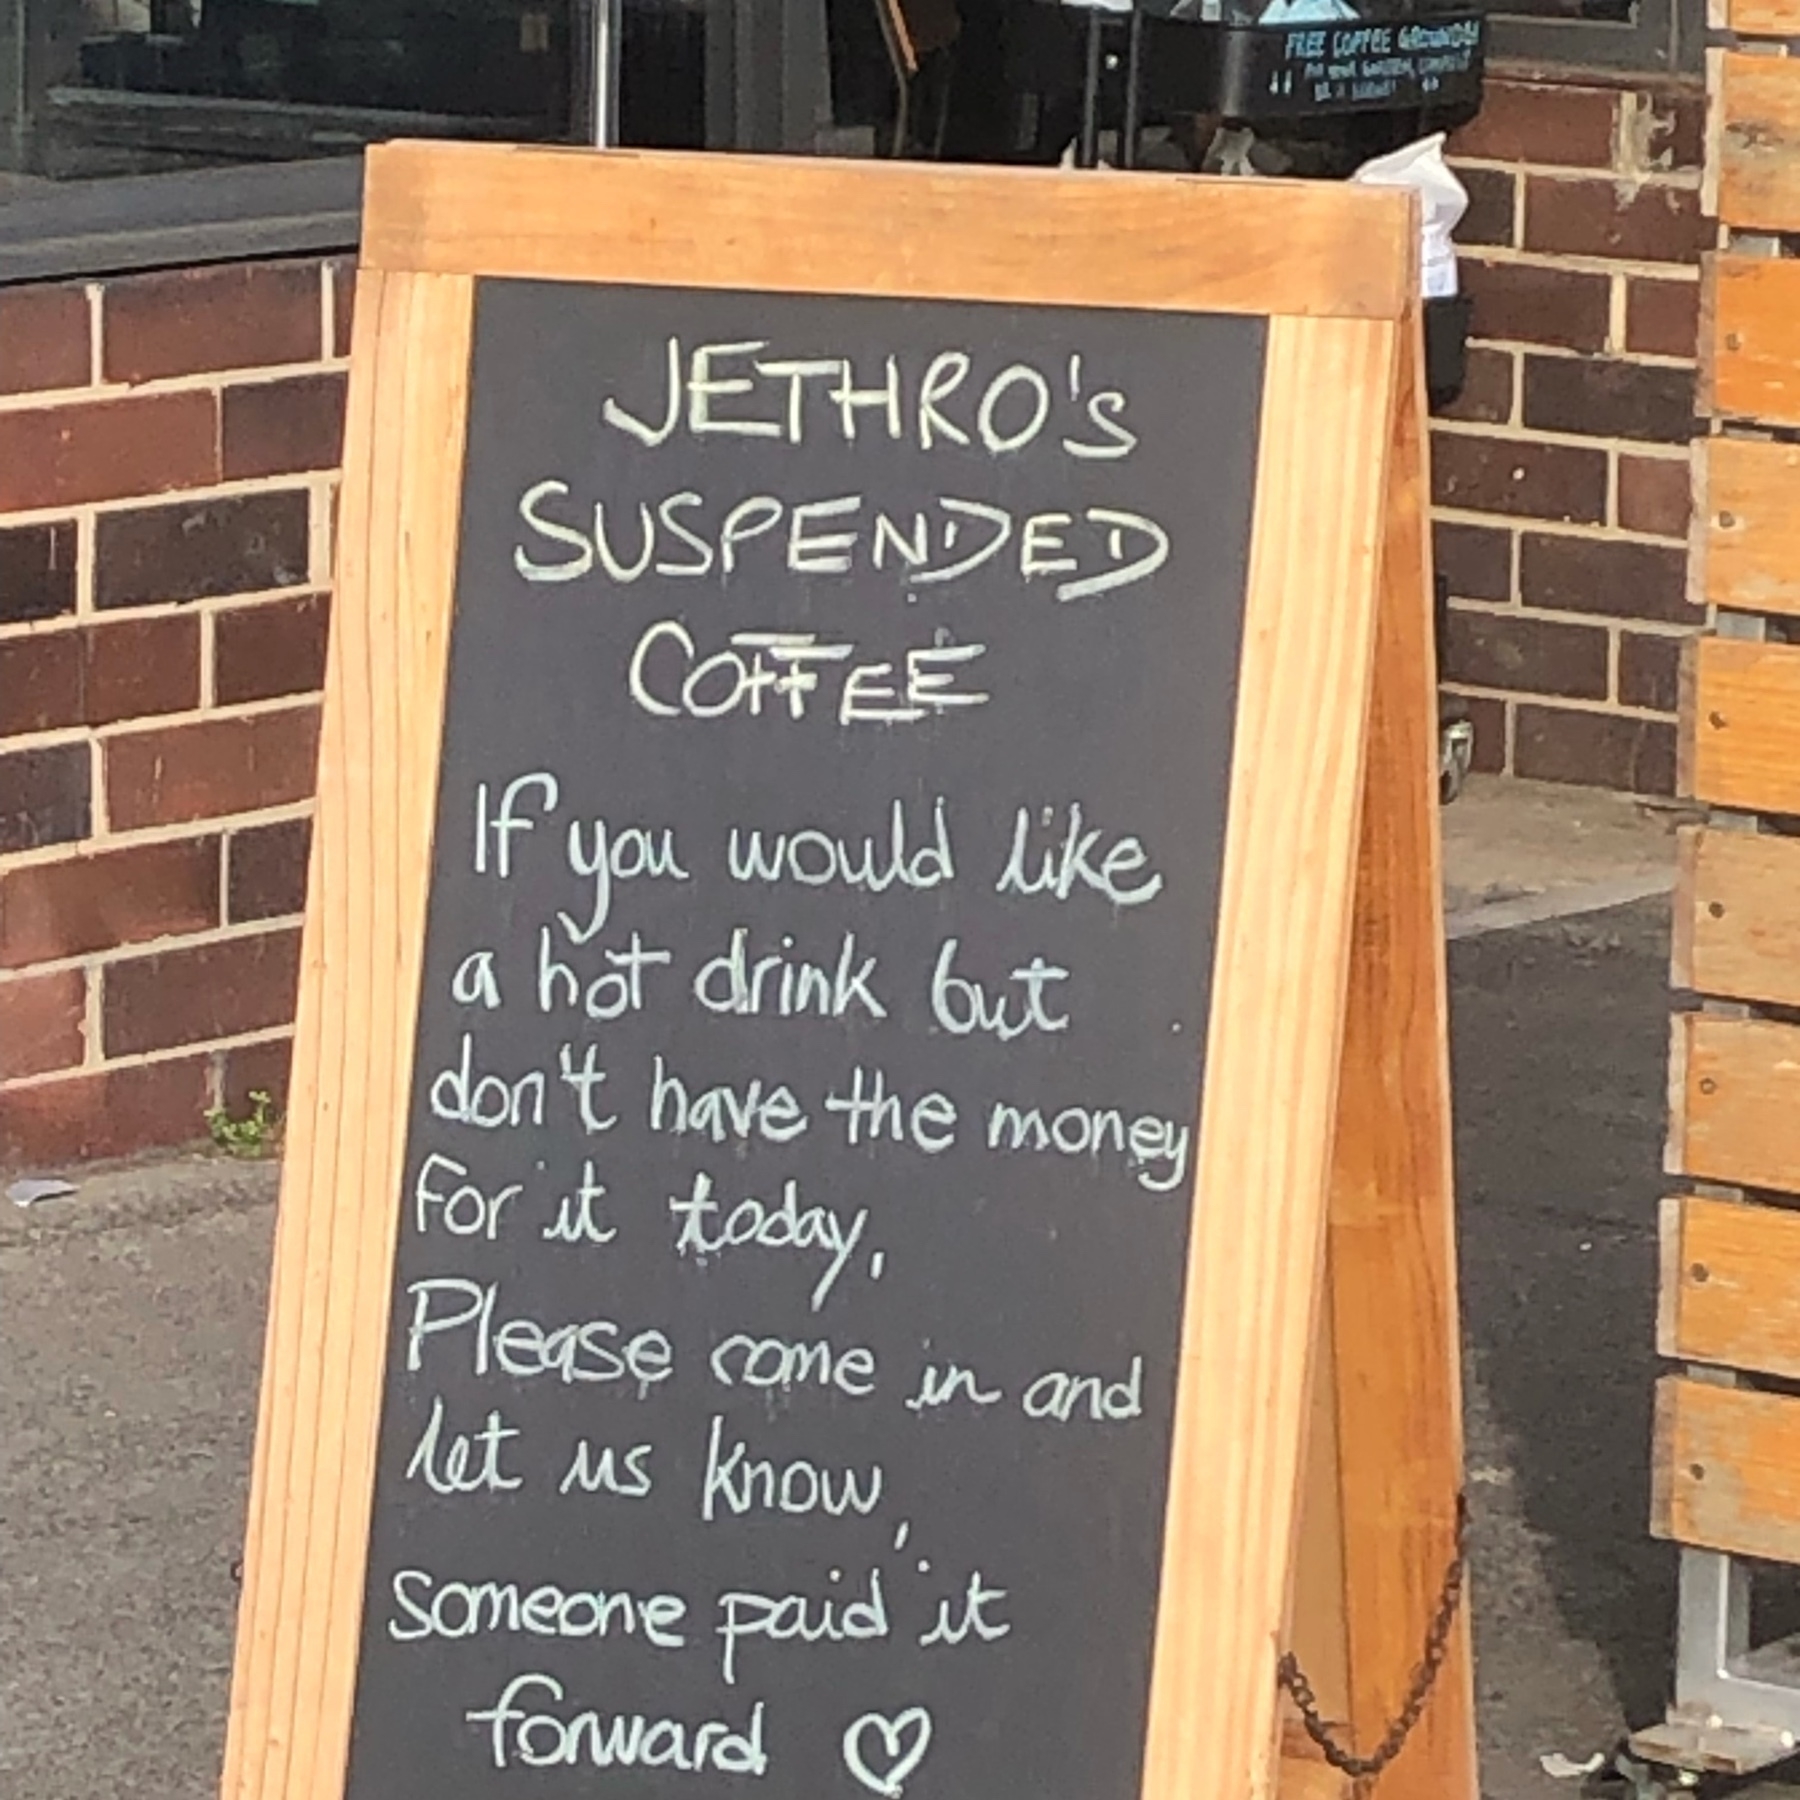 FREE COFFEE GROUNDS!
JETHRO'S
SUSPENDED
COFFEE
If you would like
a hot drink but
don't have the money
for it today,
Please come in and
let us know,
someone paid it
forward ♡